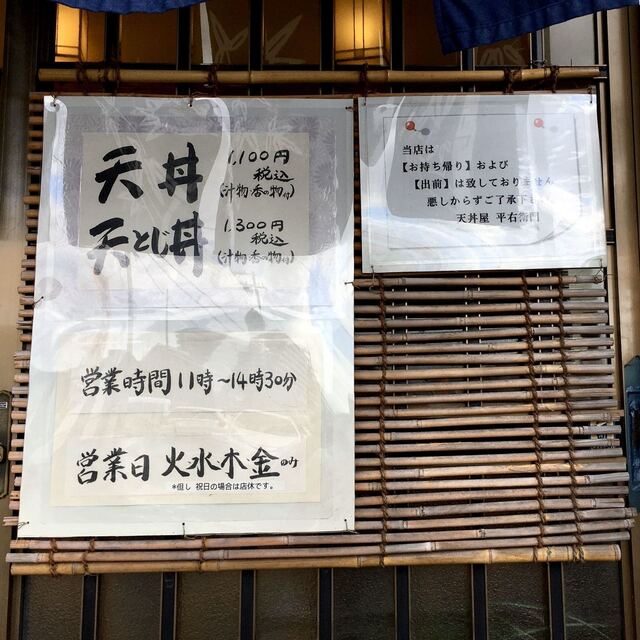 天丼 1,100円
税込
(汁物・香の物付)
天とじ丼 1,300円
税込
(汁物・香の物付)
営業時間 11時〜14時30分
営業日 火水木金のみ
*但し 祝日の場合は店休です。
当店は
【お持ち帰り】および
【出前】は致しておりません
悪しからずご了承下
天丼屋 平右衛門